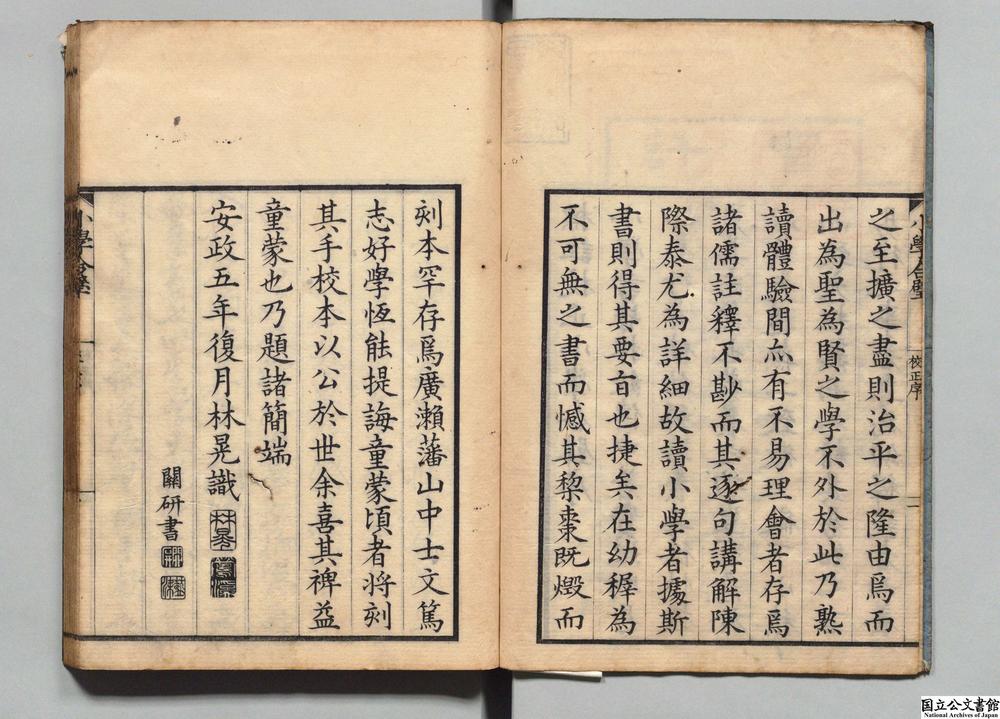 之至擴之盡則治平之隆由焉而
出為聖為賢之學不外於此乃熟
讀體驗間亦有不易理會者存焉
諸儒註釋不尠而其逐句講解陳
際泰尤為詳細故讀小學者據斯
書則得其要旨也捷矣在幼穉為
不可無之書而憾其黎棗既燬而
小學合璧
校正序
一
刻本罕存焉廣瀨藩山中士文篤
志好學恆能提誨童蒙頃者將刻
其手校本以公於世余喜其裨益
童蒙也乃題諸簡端
安政五年復月林晃識
林晃
關研書
小學合璧
国立公文書館
National Archives of Japan